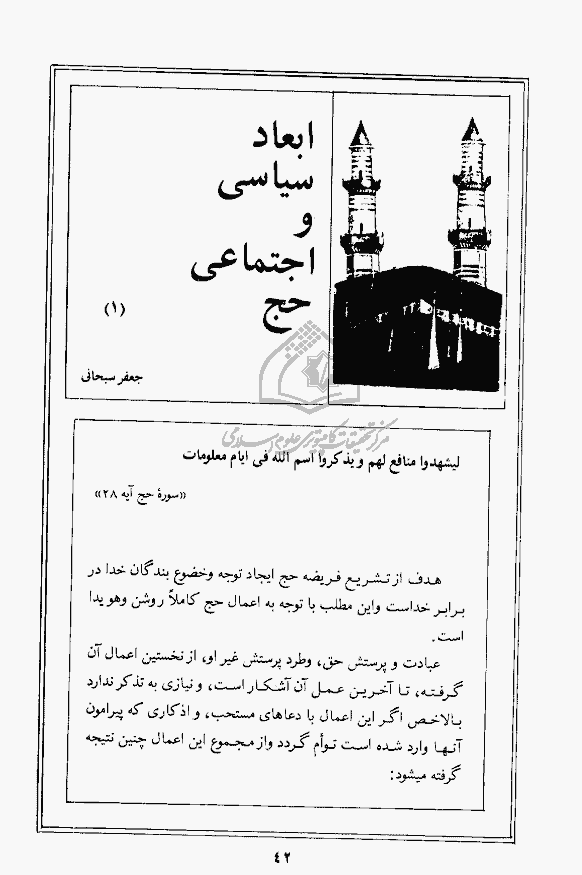 ابعاد
سیاسی
و
اجتماعی
حج
(۱)
جعفر سبحانی
مرکز تحقیقات کامپیوتری علوم اسلامی
لیشهدوا منافع لهم ویذکروا اسم الله فی ایام معلومات
«سورهٔ حج آیه ۲۸»
هدف از تشریع فریضه حج ایجاد توجه وخضوع بندگان خدا در
برابر خداست واین مطلب با توجه به اعمال حج کاملاً روشن وهویدا
است.
عبادت و پرستش حق، وطرد پرستش غیر او، از نخستین اعمال آن
گرفته، تا آخرین عمل آن آشکار است، ونیازی به تذکر ندارد
بالاخص اگر این اعمال با دعاهای مستحب، و اذکاری که پیرامون
آنها وارد شده است توأم گردد واز مجموع این اعمال چنین نتیجه
گرفته میشود:
۴۲